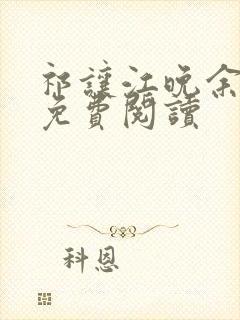 祁讓江晚余
免費閱讀
科恩